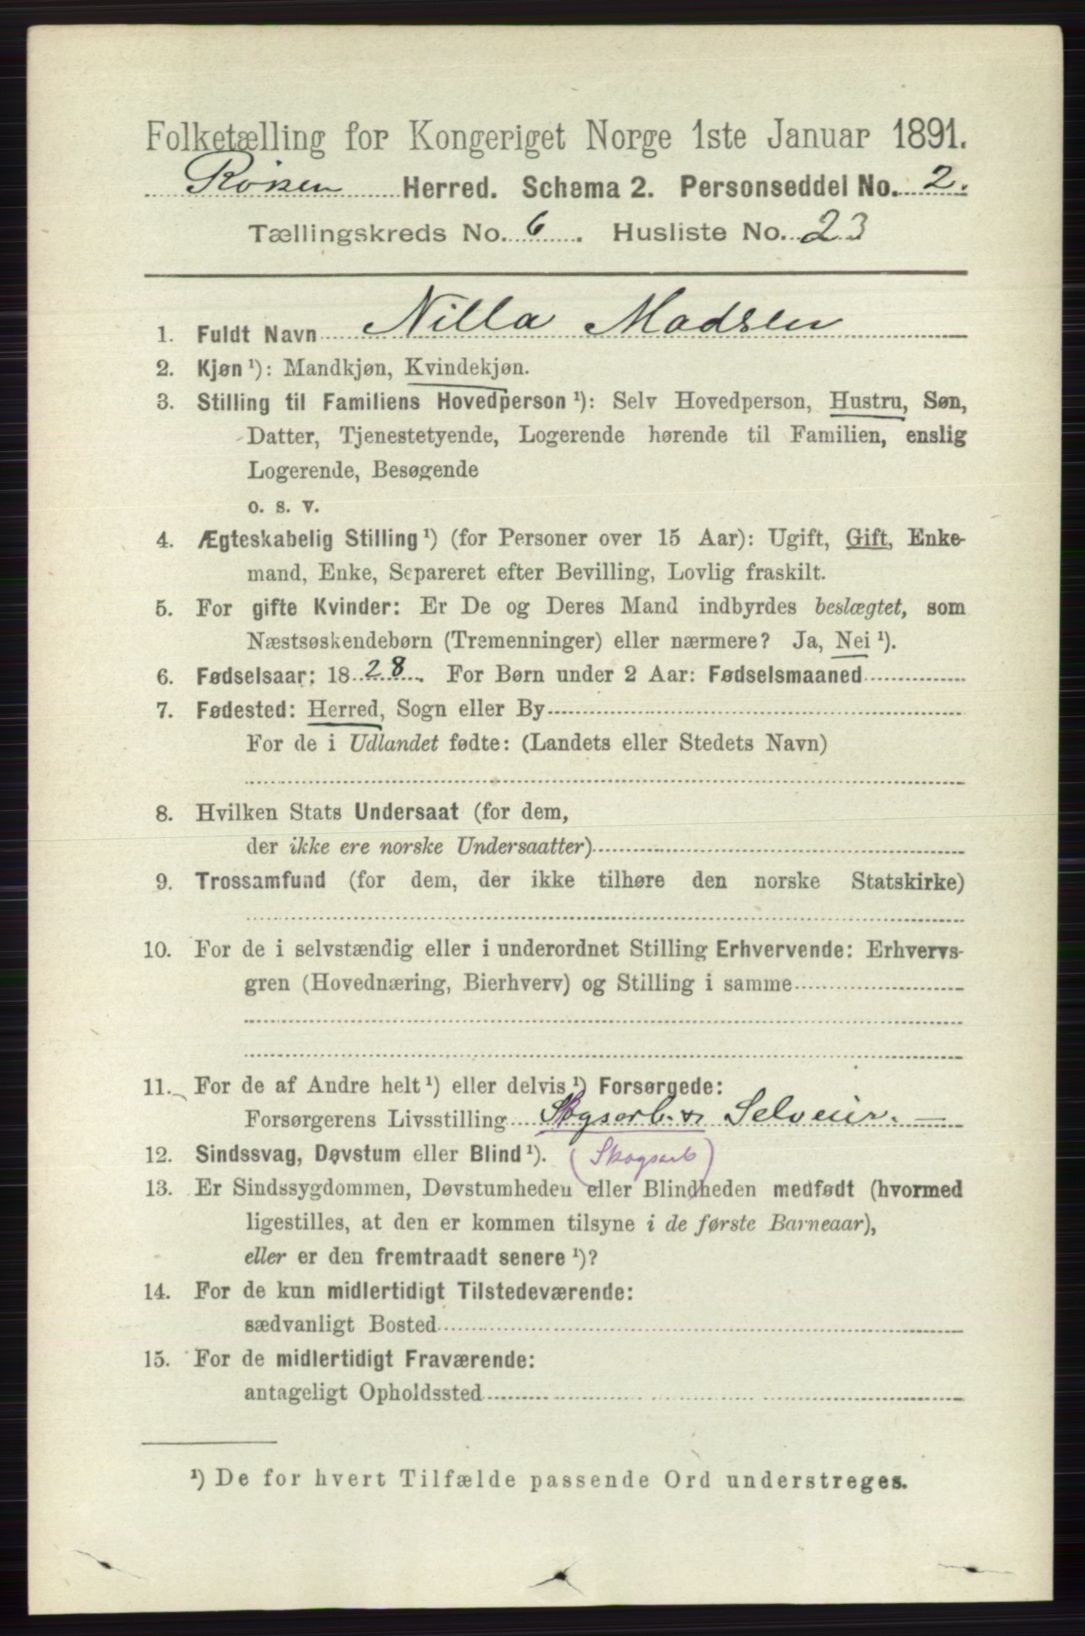 Folketælling for Kongeriget Norge 1ste Januar 1891.
Røken Herred. Schema 2. Personseddel No. 2.
Tællingskreds No. 6. Husliste No. 23
1. Fuldt Navn Nilla Madsen
2. Kjøn ¹): Mandkjøn, Kvindekjøn.
3. Stilling til Familiens Hovedperson ¹): Selv Hovedperson, Hustru, Søn,
Datter, Tjenestetyende, Logerende hørende til Familien, enslig
Logerende, Besøgende
o. s. v.
4. Ægteskabelig Stilling ¹) (for Personer over 15 Aar): Ugift, Gift, Enke-
mand, Enke, Separeret efter Bevilling, Lovlig fraskilt.
5. For gifte Kvinder: Er De og Deres Mand indbyrdes beslægtet, som
Næstsøskendebørn (Tremenninger) eller nærmere? Ja, Nei ¹).
6. Fødselsaar: 1828. For Børn under 2 Aar: Fødselsmaaned
7. Fødested: Herred, Sogn eller By
For de i Udlandet fødte: (Landets eller Stedets Navn)
8. Hvilken Stats Undersaat (for dem,
der ikke ere norske Undersaatter)
9. Trossamfund (for dem, der ikke tilhøre den norske Statskirke)
10. For de i selvstændig eller i underordnet Stilling Erhvervende: Erhvervs-
gren (Hovednæring, Bierhverv) og Stilling i samme
11. For de af Andre helt ¹) eller delvis ¹) Forsørgede:
Forsørgerens Livsstilling Skogsarb. & Selveier. —
12. Sindssvag, Døvstum eller Blind ¹). (Skogsarb)
13. Er Sindssygdommen, Døvstumheden eller Blindheden medfødt (hvormed
ligestilles, at den er kommen tilsyne i de første Barneaar),
eller er den fremtraadt senere ¹)?
14. For de kun midlertidigt Tilstedeværende:
sædvanligt Bosted
15. For de midlertidigt Fraværende:
antageligt Opholdssted
¹) De for hvert Tilfælde passende Ord understreges.